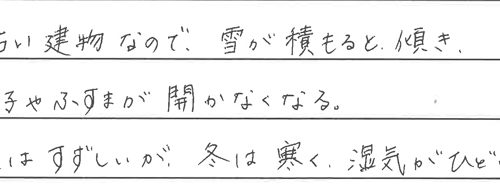 い建物なので、雪が積もると、傾き、
やふすまが開かなくなる。
はすずしいが、冬は寒く、湿気がひど